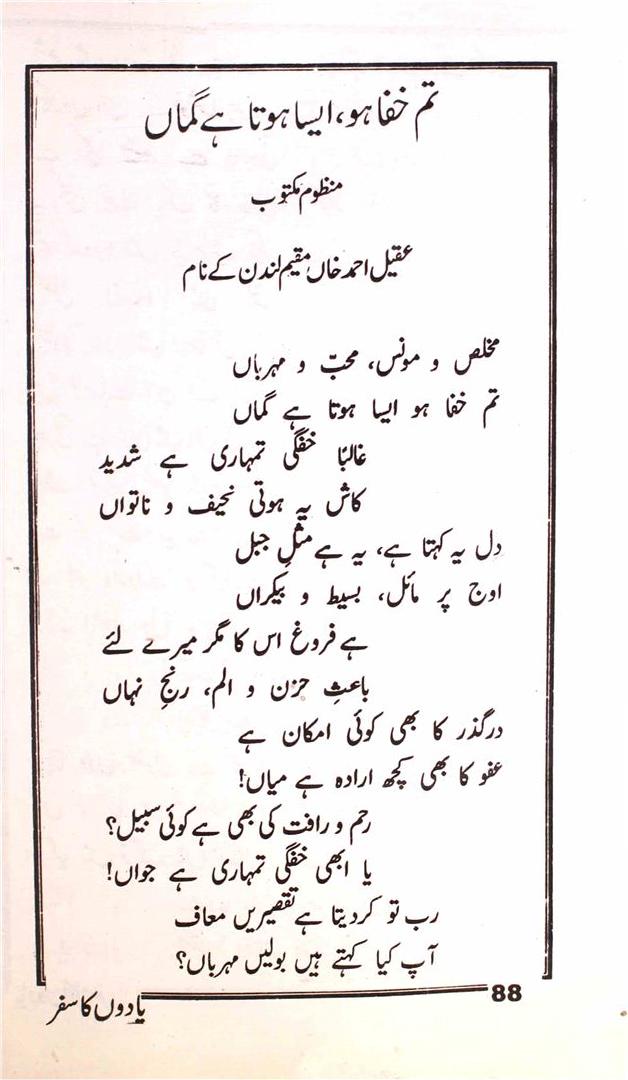 تم خفا ہو، ایسا ہوتا ہے گماں
منظوم مکتوب
عقیل احمد خاں مقیم لندن کے نام
مخلص و مونس، محبّ و مہرباں
تم خفا ہو ایسا ہوتا ہے گماں
غالبًا خفگی تمہاری ہے شدید
کاش یہ ہوتی نحیف و ناتواں
دل یہ کہتا ہے، یہ ہے مثلِ جبل
اوج پر مائل، بسیط و بیکراں
ہے فروغ اس کا مگر میرے لئے
باعثِ حزن و الم، رنجِ نہاں
درگذر کا بھی کوئی امکان ہے
عفو کا بھی کچھ ارادہ ہے میاں!
رحم و رافت کی بھی ہے کوئی سبیل؟
یا ابھی خفگی تمہاری ہے جواں!
رب تو کردیتا ہے تقصیریں معاف
آپ کیا کہتے ہیں بولیں مہرباں؟
88
یادوں کا سفر